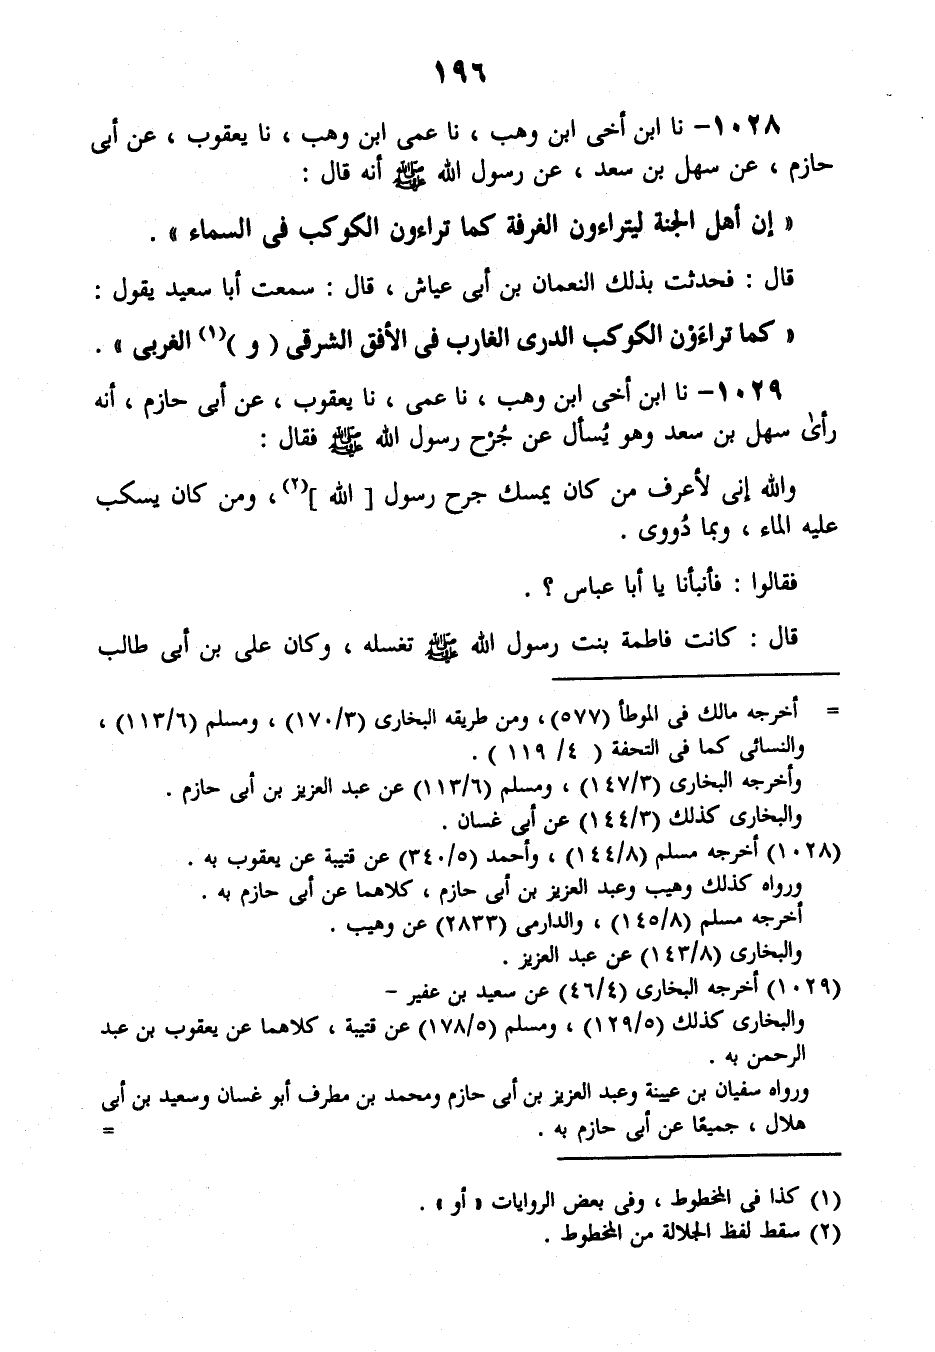 ١٩٦
١٠٢٨- نا ابن أخى ابن وهب ، نا عمى ابن وهب ، نا يعقوب ، عن أبى
حازم ، عن سهل بن سعد ، عن رسول الله ﷺ أنه قال :
« إن أهل الجنة ليتراءون الغرفة كما تراءون الكوكب فى السماء » .
قال : فحدثت بذلك النعمان بن أبى عياش ، قال : سمعت أبا سعيد يقول :
« كما تراءَوْن الكوكب الدرى الغارب فى الأفق الشرقى ( و )(١) الغربى » .
١٠٢٩- نا ابن أخى ابن وهب ، نا عمى ، نا يعقوب ، عن أبى حازم ، أنه
رأىٰ سهل بن سعد وهو يُسأل عن جُرْح رسول الله ﷺ فقال :
والله إنى لأعرف من كان يمسك جرح رسول [ الله ](٢) ، ومن كان يسكب
عليه الماء ، وبما دُووى .
فقالوا : فأنبأنا يا أبا عباس ؟ .
قال : كانت فاطمة بنت رسول الله ﷺ تغسله ، وكان على بن أبى طالب
= أخرجه مالك فى الموطأ (٥٧٧) ، ومن طريقه البخارى (١٧٠/٣) ، ومسلم (١١٣/٦) ،
والنسائى كما فى التحفة ( ٤/ ١١٩ ) .
وأخرجه البخارى (١٤٧/٣) ، ومسلم (١١٣/٦) عن عبد العزيز بن أبى حازم .
والبخارى كذلك (١٤٤/٣) عن أبى غسان .
(١٠٢٨) أخرجه مسلم (١٤٤/٨) ، وأحمد (٣٤٠/٥) عن قتيبة عن يعقوب به .
ورواه كذلك وهيب وعبد العزيز بن أبى حازم ، كلاهما عن أبى حازم به .
أخرجه مسلم (١٤٥/٨) ، والدارمى (٢٨٣٣) عن وهيب .
والبخارى (١٤٣/٨) عن عبد العزيز .
(١٠٢٩) أخرجه البخارى (٤٦/٤) عن سعيد بن عفير -
والبخارى كذلك (١٢٩/٥) ، ومسلم (١٧٨/٥) عن قتيبة ، كلاهما عن يعقوب بن عبد
الرحمن به .
ورواه سفيان بن عيينة وعبد العزيز بن أبى حازم ومحمد بن مطرف أبو غسان وسعيد بن أبى
هلال ، جميعًا عن أبى حازم به . =
(١) كذا فى المخطوط ، وفى بعض الروايات « أو » .
(٢) سقط لفظ الجلالة من المخطوط .